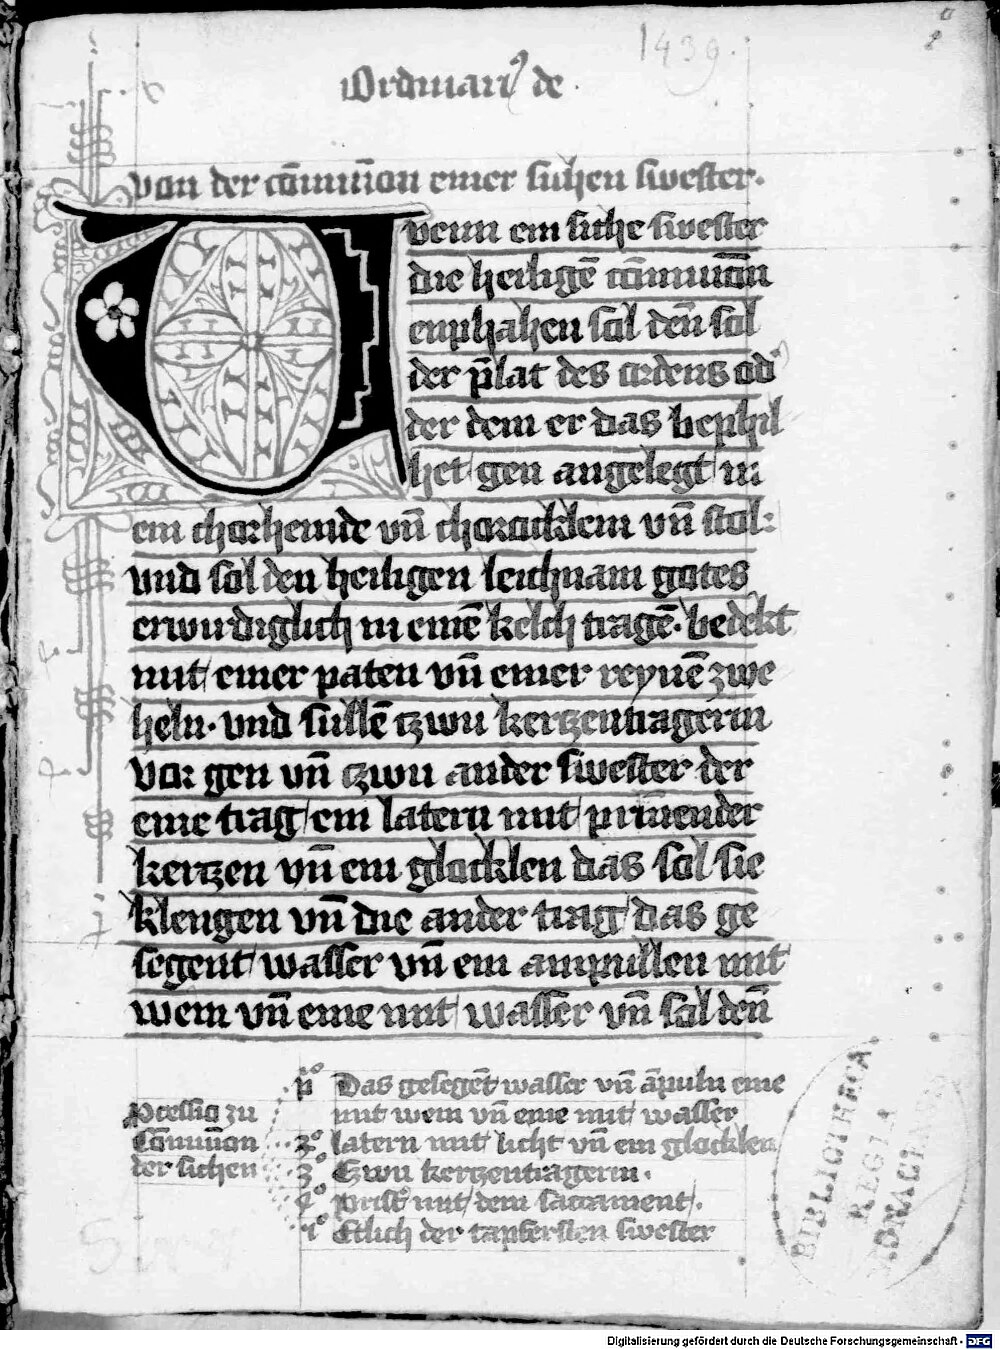 1439.
Ordinari9 de
von der cōmuniōn einer sichen swester.
Wenn ein siche swester
die heiligē cōmuniōn
enphahen sol deñ sol
der p̄lat des ordens od'
der dem er das bephil
het gen angelegt in
ein chorhemde vñ chorocklein vñ stol:
vnd sol den heiligen leichnam gotes
erwirdiglich in einē kelch tragē. bedekt
mit einer paten vñ einer reynē zwe
heln. vnd sullē tzwu kertzentragerin
vor gen vñ tzwu ander swester der
eine trag ein latern mit prinēnder
kertzen vñ ein glocklen das sol sie
klengen vñ die ander trag das ge
segent wasser vñ ein ampullen mit
wein vñ eine mit wasser vñ sol deñ
pcessio zu
Cōmuniōn
der sichen
pº Das gesegēt wasser vñ āpuln eine
mit wein vñ eine mit wasser
2º latern mit licht vñ ein glocklen
3º Czwu kerczentragerin.
4º prist' mit dem sacrament.
iº Etlich der tapfersten swester
BIBLIOTHECA
REGIA
MONACENSIS
Digitalisierung gefördert durch die Deutsche Forschungsgemeinschaft - DFG